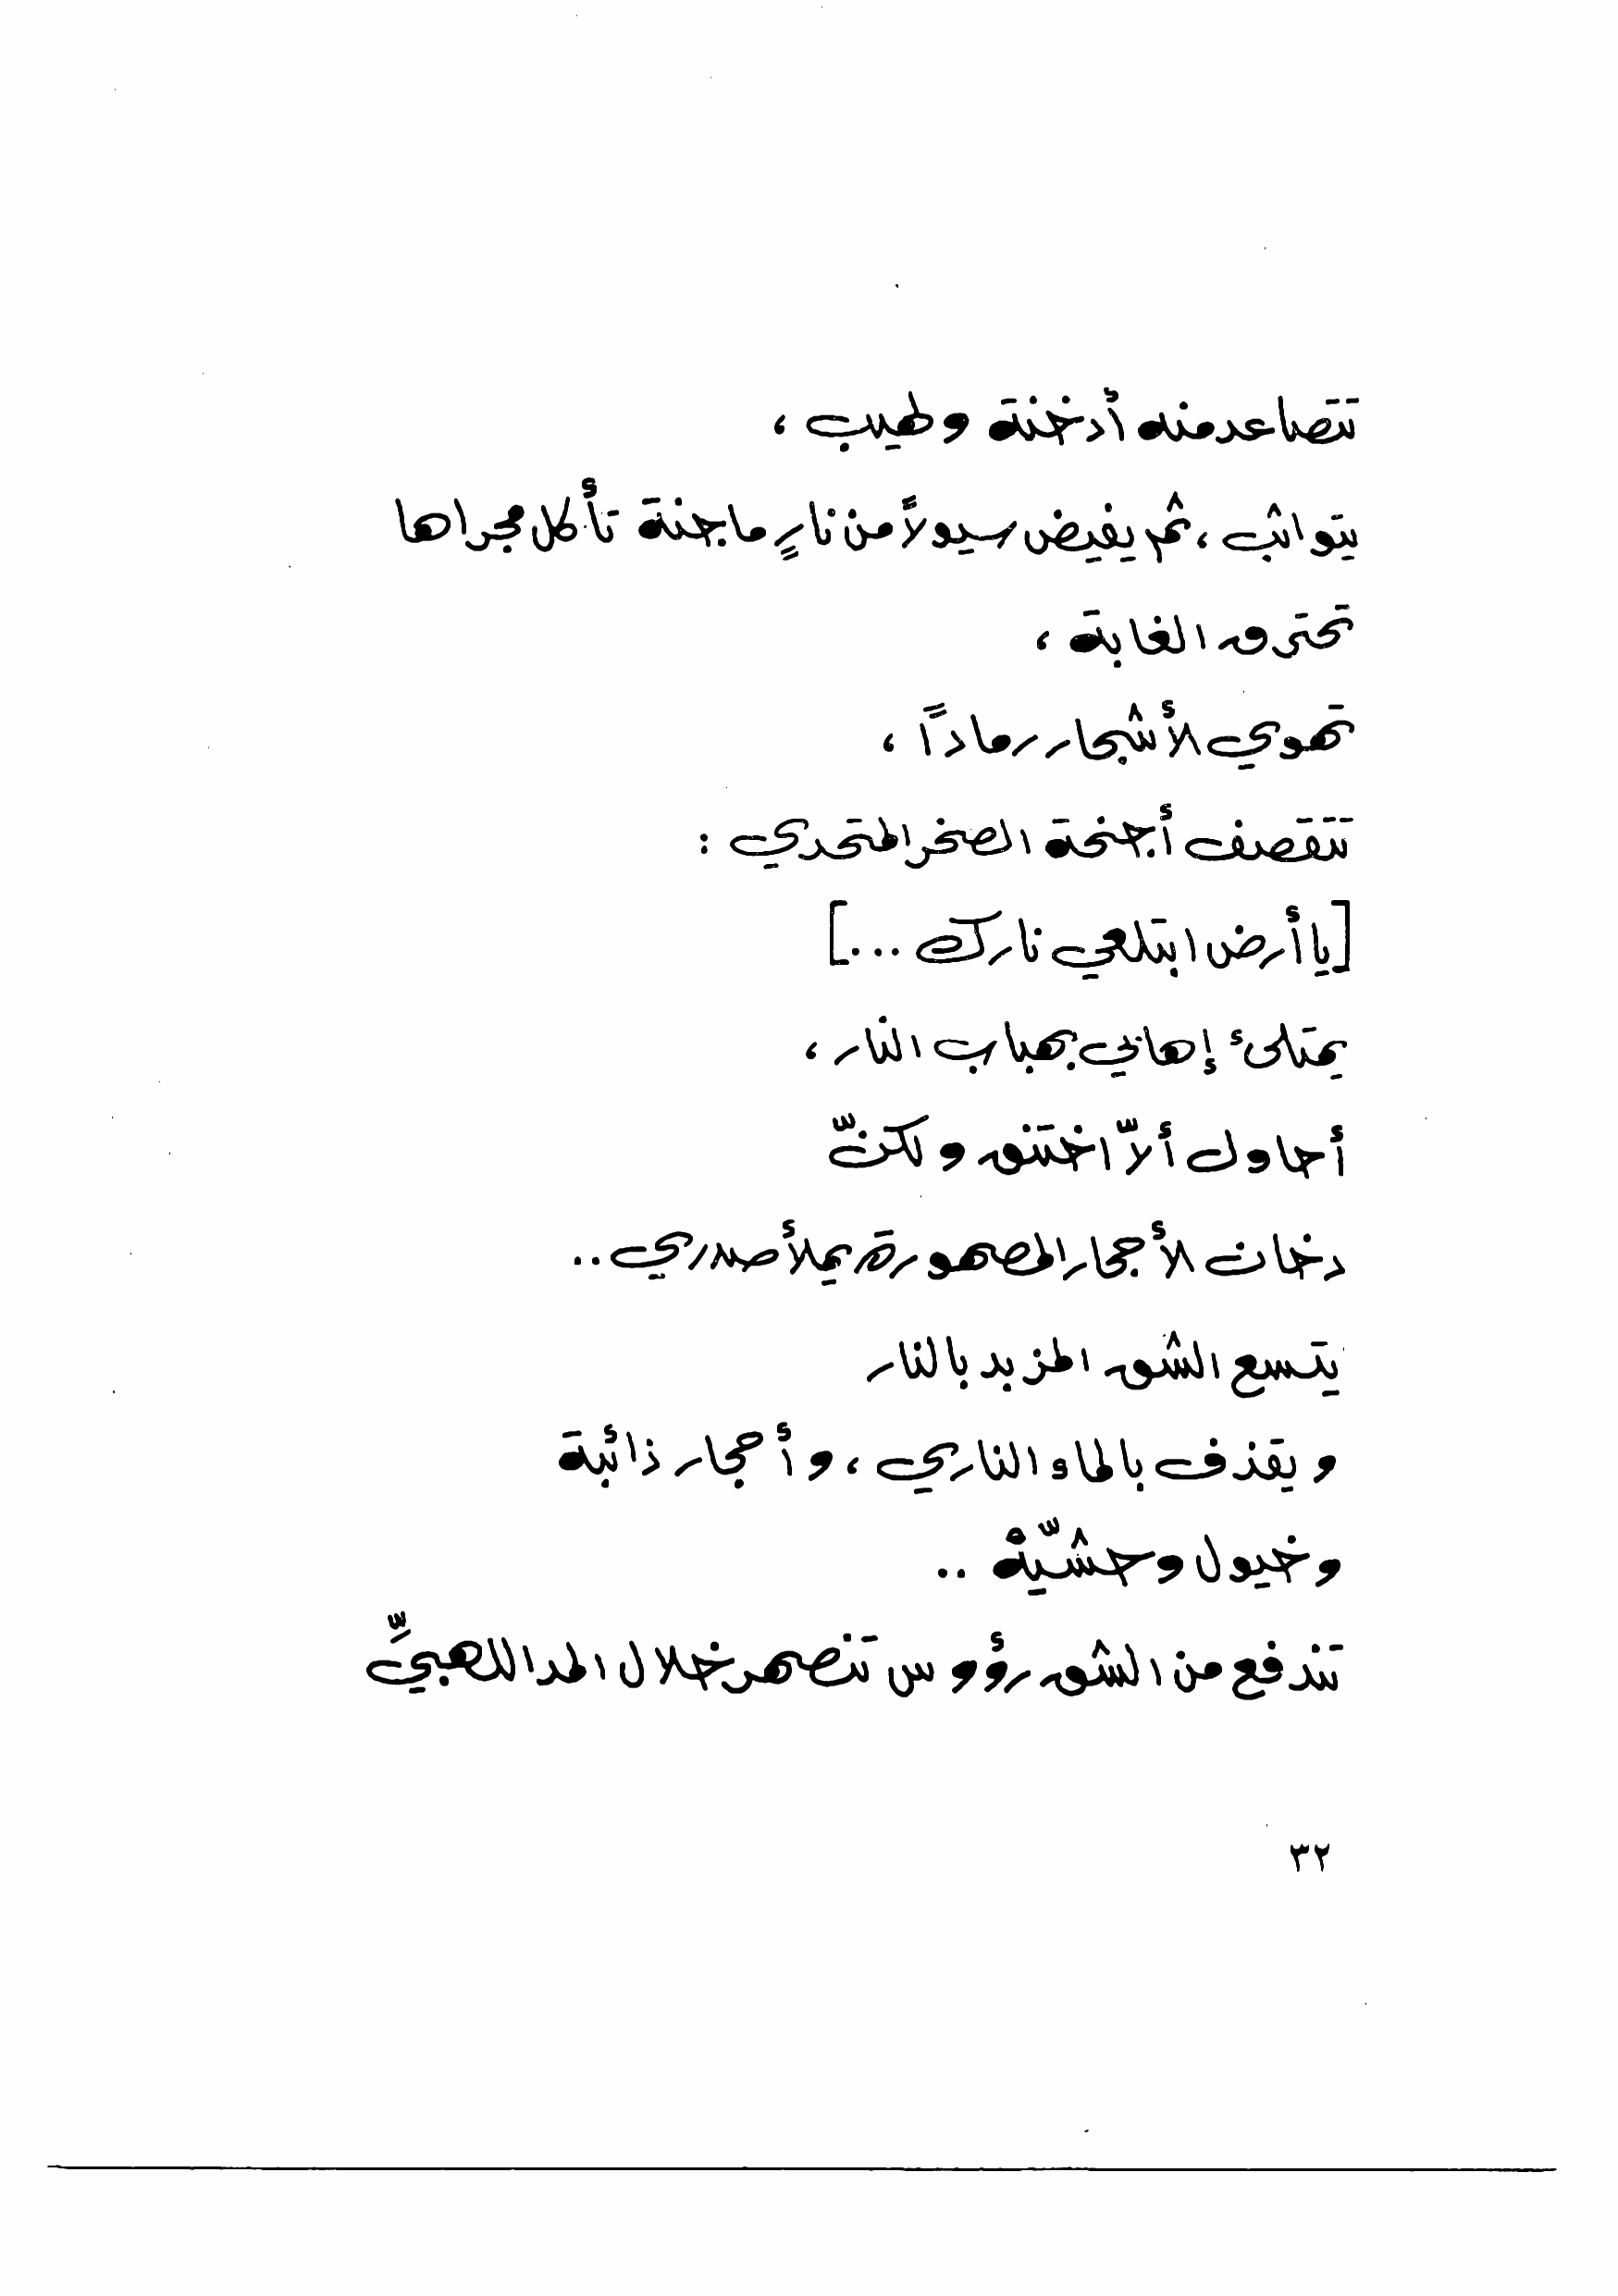 تتصاعد منه أدخنة ولهيب ،
يتواثب ، ثم يفيض سيولاً من نارٍ ماجنة تأكل مجراها
تحترق الغابة ،
تهوي الأشجار رماداً ،
تتقصف أجنحة الصخر المتحدي :
[يا أرض ابتلعي نارك ...]
يمتلئ إهابي بهباب النار ،
أحاول ألاّ اختنق ولكنّ
دخان الأحجار المصهورة يملأ صدري ..
يتسع الشق المزبد بالنار
ويقذف بالماء الناري ، وأحجار ذائبة
وخيول وحشيّةْ ..
تندفع من الشق رؤوس تنصهر خلال المد اللهبيِّ
٣٢